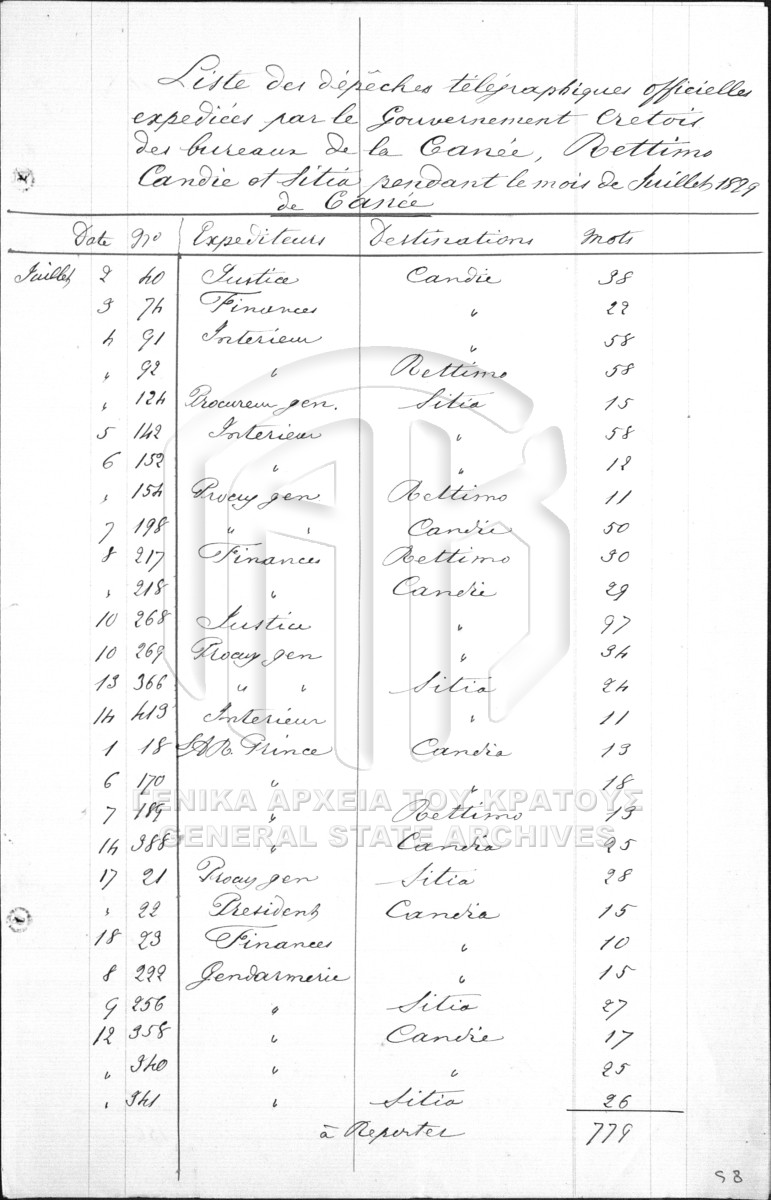 Liste des dépêches télégraphiques officielles
expediées par le Gouvernement Cretois
des bureaux de la Canée, Rettimo
Candie et Sitia pendant le mois de Juillet 1899
de Canée
Date No Expediteurs Destinations Mots
Juillet 2 40 Justice Candie 38
3 74 Finances " 22
4 91 Interieur " 58
" 92 " Rettimo 58
" 124 Procureur gen. Sitia 15
5 142 Interieur " 58
6 152 " " 12
" 154 Procur gen Rettimo 11
7 198 " " Candie 50
8 217 Finances Rettimo 30
" 218 " Candie 29
10 268 Justice " 97
10 269 Procur gen " 34
13 366 " " Sitia 24
14 413 Interieur " 11
1 18 S.A.R. Prince Candia 13
6 170 " " 18
7 189 " Rettimo 13
14 388 " Candia 25
17 21 Procur gen Sitia 28
" 22 President Candia 15
18 23 Finances " 10
8 222 Gendarmerie " 15
9 256 " Sitia 27
12 358 " Candie 17
" 340 " " 25
" 341 " Sitia 26
à Reporter 779
ΓΕΝΙΚΑ ΑΡΧΕΙΑ ΤΟΥ ΚΡΑΤΟΥΣ
GENERAL STATE ARCHIVES